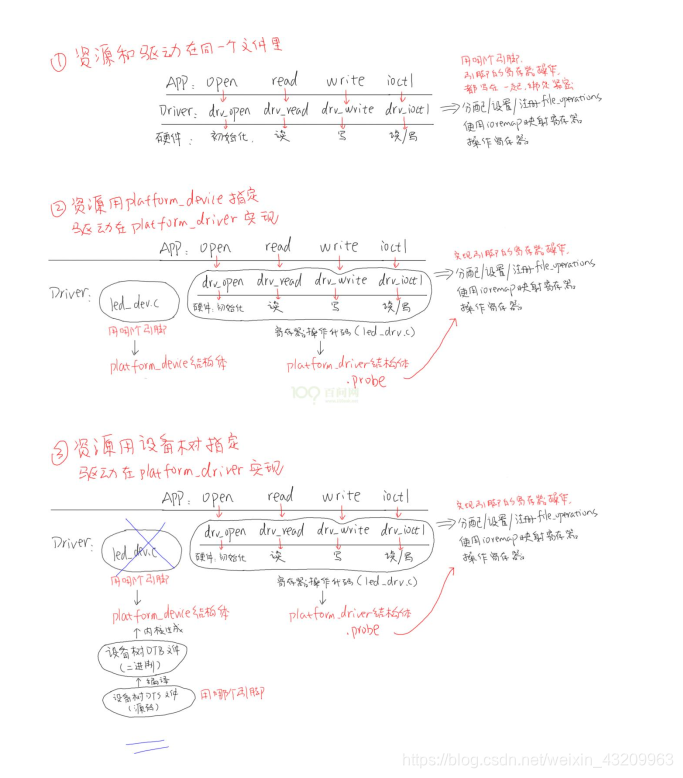 ① 资源和驱动在同一个文件里
APP: open read write ioctl
Driver: drv_open drv_read drv_write drv_ioctl
硬件: 初始化. 读 写 读/写
用哪个引脚,
引脚的寄存器操作,
都写在一起,绑定紧密
⇒ 分配/设置/注册file_operations
使用ioremap映射寄存器
操作寄存器
② 资源用platform_device指定
驱动在platform_driver实现
APP: open read write ioctl
Driver: led_dev.c drv_open drv_read drv_write drv_ioctl
硬件:初始化 读 写 读/写
用哪个引脚 寄存器操作代码(led_drv.c)
platform_device结构体 platform_driver结构体
.probe
实现引脚的寄存器操作,
⇒ 分配/设置/注册file_operations
使用ioremap映射寄存器
操作寄存器
100 百问网
③ 资源用设备树指定
驱动在platform_driver实现
APP: open read write ioctl
Driver: led_dev.c drv_open drv_read drv_write drv_ioctl
硬件:初始化 读 写 读/写
用哪个引脚 寄存器操作代码(led_drv.c)
platform_device结构体 platform_driver结构体
.probe
实现引脚的寄存器操作,
⇒ 分配/设置/注册file_operations
使用ioremap映射寄存器
操作寄存器
↑内核生成
设备树DTB文件
(二进制)
↑编译
设备树DTS文件
(源码)
用哪个引脚
https://blog.csdn.net/weixin_43209963